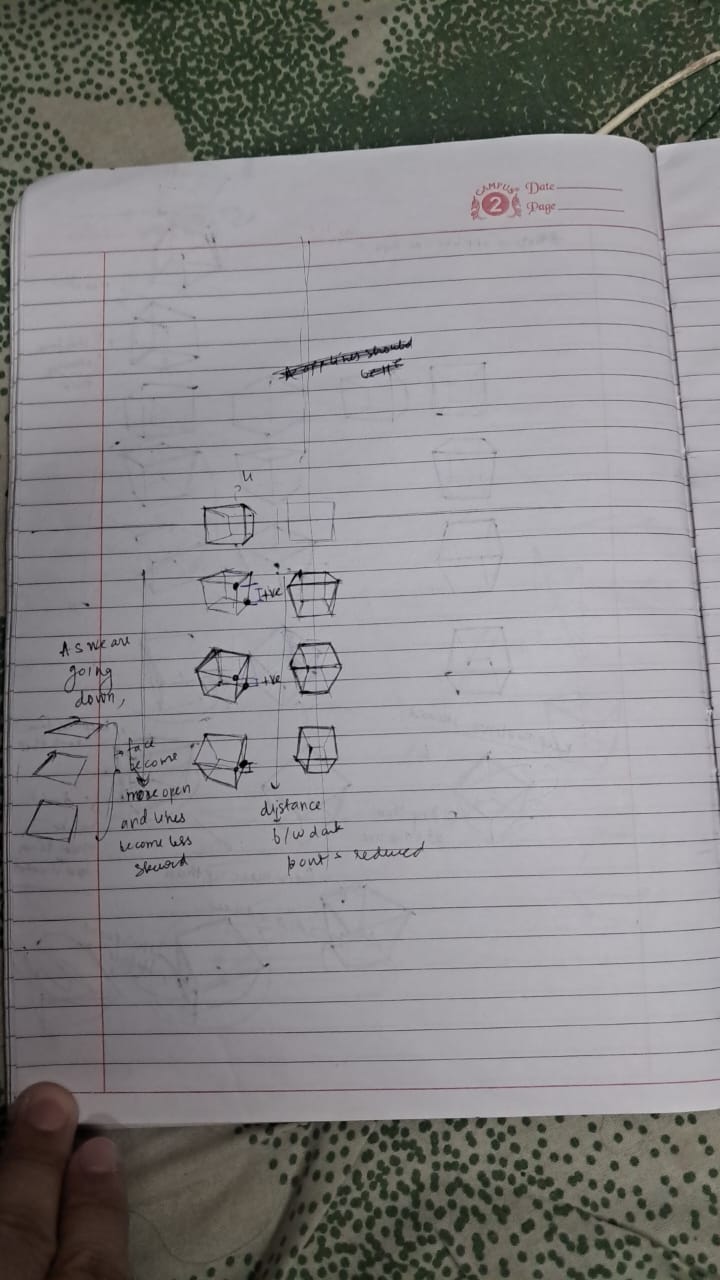 CAMPUS
2
Date
Page
As we are
going
down,
face
become
more open
and lines
become less
skewed
+ve
+ve
distance
b/w dark
points reduced